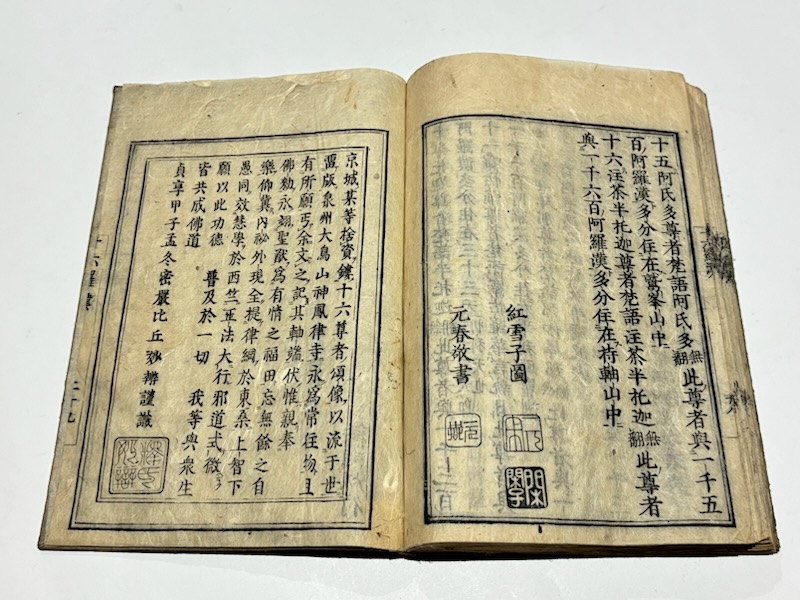 十五阿氏多尊者梵語阿氏多無翻此尊者與一千五
百阿羅漢多分住在鷲峯山中
十六注荼半托迦尊者梵語注荼半托迦無翻此尊者
與一千六百阿羅漢多分住在持軸山中
紅雪子圖
元春敬書
京城某等捨資鏤十六尊者頌像以流于世
置版泉州大鳥山神鳳律寺永為常住物且
有所願丐余文之記其軸端伏惟親奉
佛勅永翊聖猷為有情之福田忘無餘之自
樂仰冀內祕外現全提律綱於東桑上智下
愚同效慧學於西竺正法大行邪道式微
願以此功德 普及於一切 我等與衆生
皆共成佛道
貞享甲子孟冬密嚴比丘妙辨謹識
十六羅漢
二十九